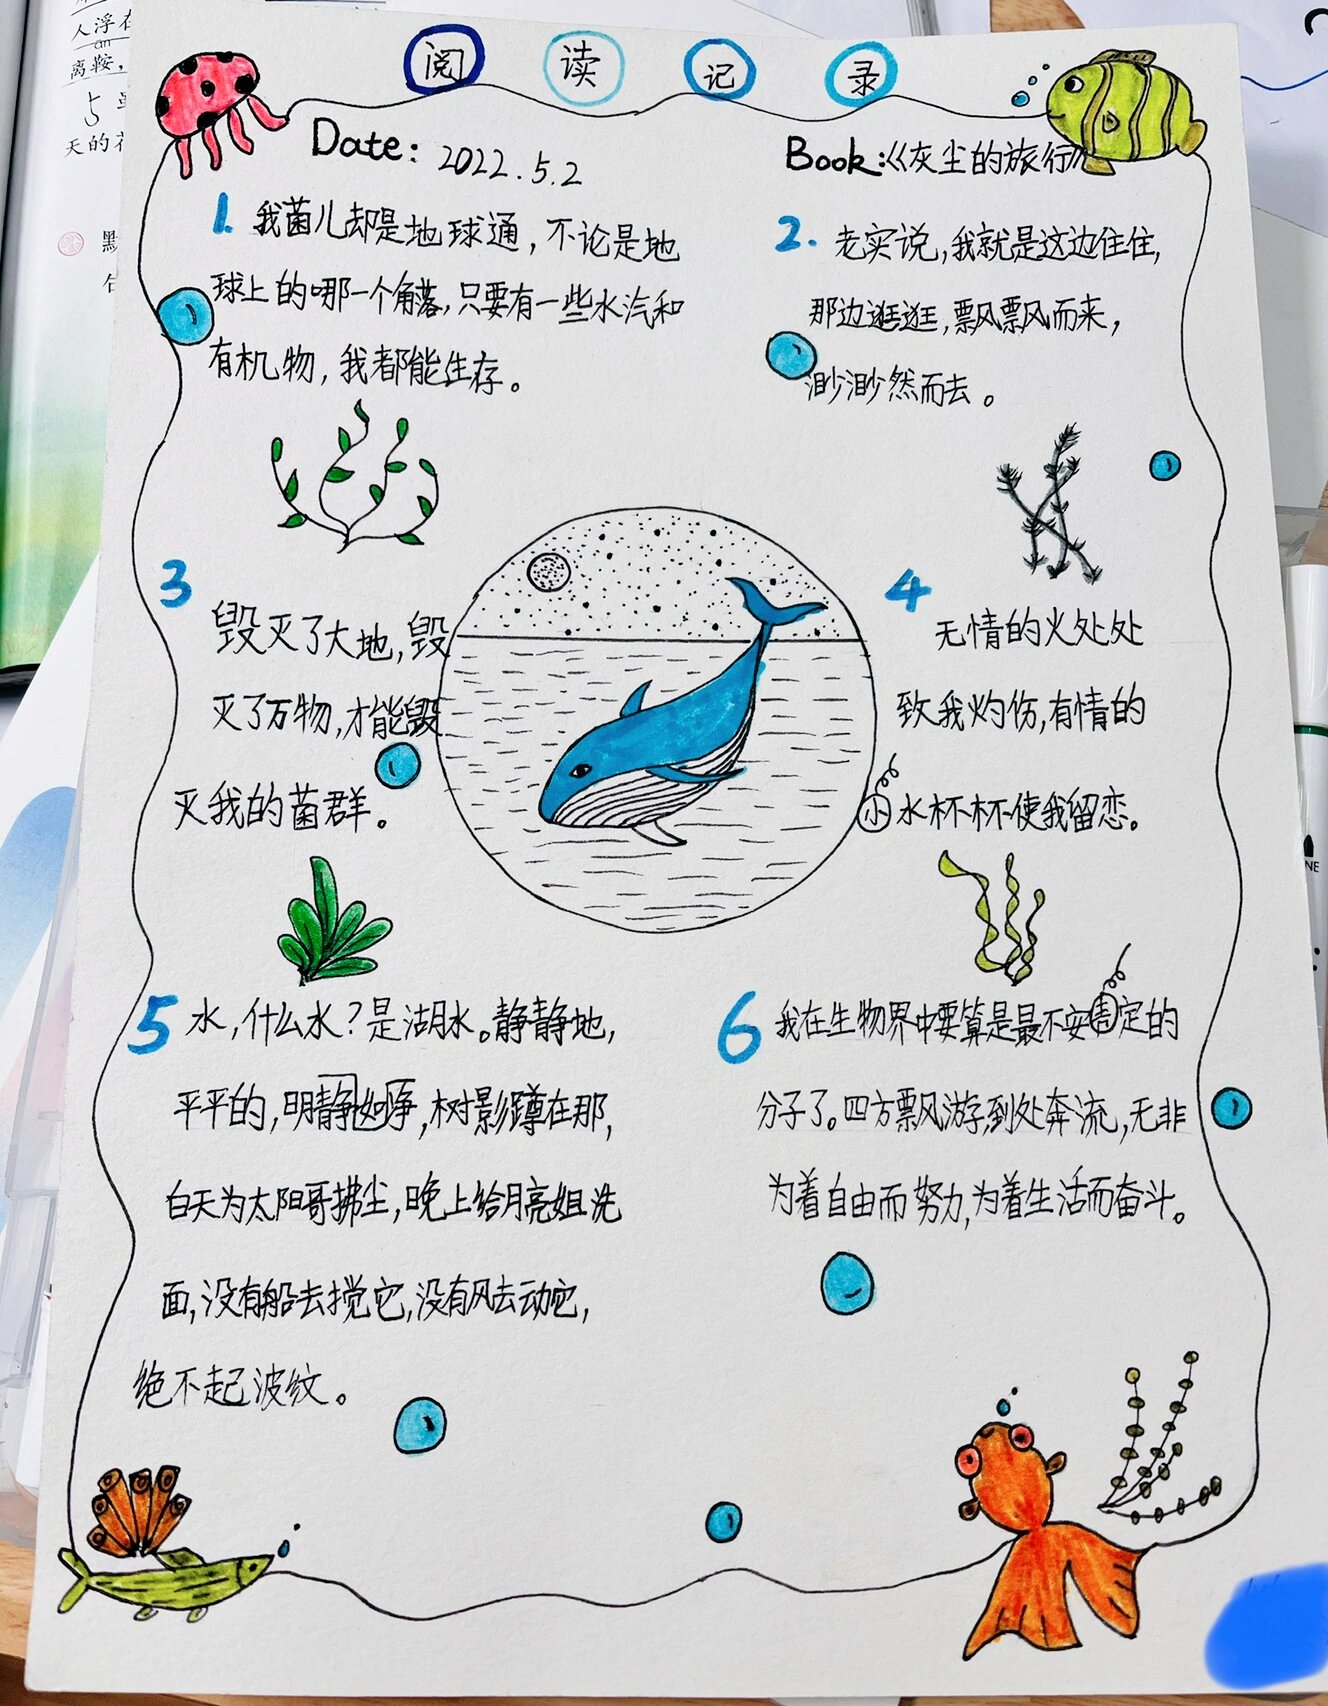 阅读记录
Date: 2022.5.2
Book:《灰尘的旅行》
1. 我菌儿却是地球通，不论是地
球上的哪一个角落，只要有一些水汽和
有机物，我都能生存。
2. 老实说，我就是这边住住，
那边逛逛，飘飘而来，
渺渺然而去。
3 毁灭了大地，毁
灭了万物，才能毁
灭我的菌群。
4 无情的火处处
致我灼伤，有情的
小水杯杯使我留恋。
5 水，什么水？是湖水。静静地，
平平的，明静如
，树影蹲在那，
白天为太阳哥拂尘，晚上给月亮姐洗
面，没有船去搅它，没有风去动它，
绝不起波纹。
6 我在生物界中要算是最不安固定的
分子了。四方飘游，到处奔流，无非
为着自由而努力，为着生活而奋斗。
人浮在
an
离鞍，
天的花